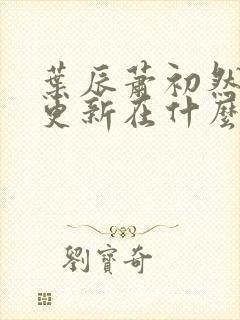 葉辰蕭初然
更新在什麼
劉寶奇